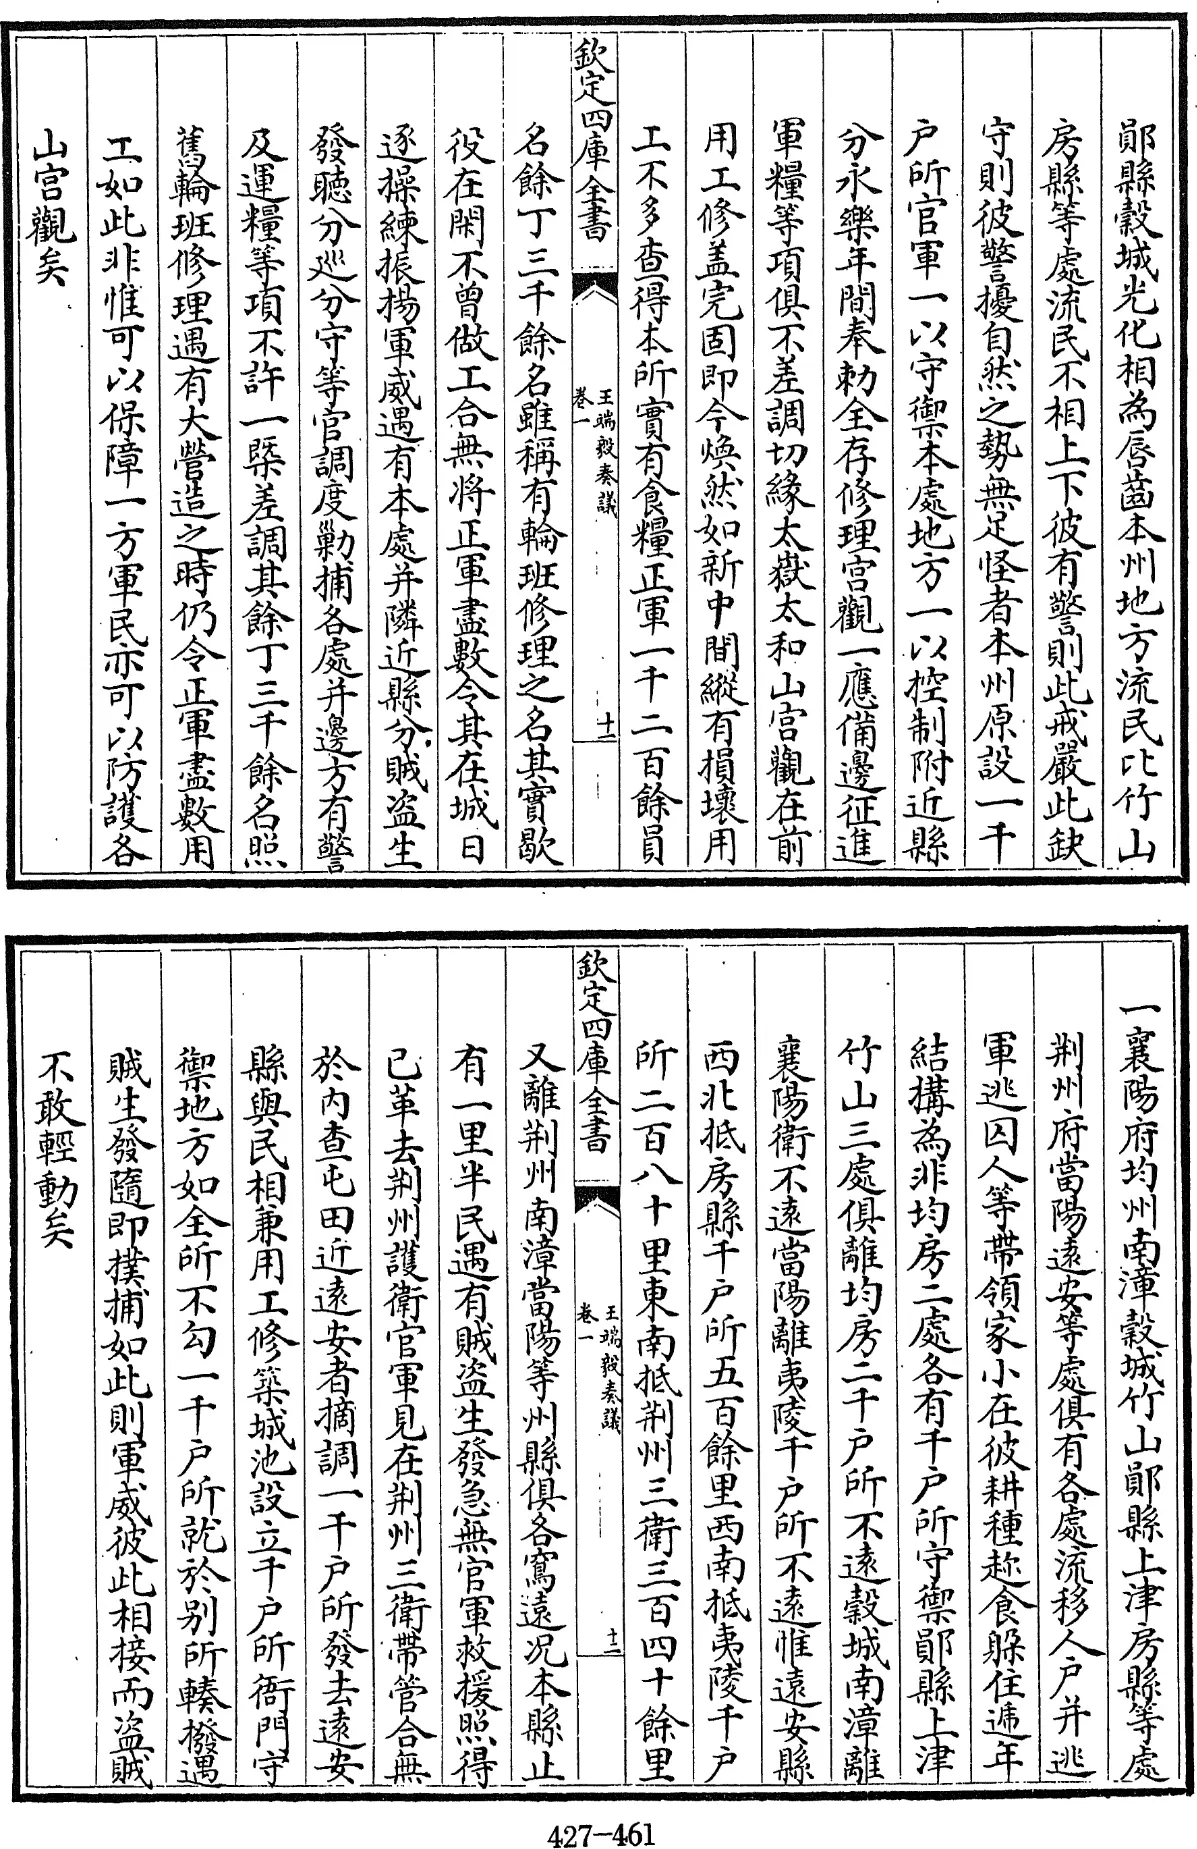 鄖縣穀城光化相為唇齒本州地方流民比竹山
房縣等處流民不相上下彼有警則此戒嚴此缺
守則彼警擾自然之勢無足怪者本州原設一千
户所官軍一以守禦本處地方一以控制附近縣
分永樂年間奉勅全存修理宫觀一應備邊征進
軍糧等項俱不差調切緣太嶽太和山宫觀在前
用工修蓋完固即今煥然如新中間縱有損壞用
工不多查得本所實有食糧正軍一千二百餘員
欽定四庫全書
王端毅奏議
卷一
十一
名餘丁三千餘名雖稱有輪班修理之名其實歇
役在閑不曾做工合無將正軍盡數令其在城日
逐操練振揚軍威遇有本處并隣近縣分賊盗生
發聽分巡分守等官調度勦捕各處并邊方有警
及運糧等項不許一槩差調其餘丁三千餘名照
舊輪班修理遇有大營造之時仍令正軍盡數用
工如此非惟可以保障一方軍民亦可以防護各
山宫觀矣
一襄陽府均州南漳穀城竹山鄖縣上津房縣等處
荆州府當陽遠安等處俱有各處流移人户并逃
軍逃囚人等帶領家小在彼耕種趂食躲住逓年
結搆為非均房二處各有千户所守禦鄖縣上津
竹山三處俱離均房二千户所不遠穀城南漳離
襄陽衛不遠當陽離夷陵千户所不遠惟遠安縣
西北抵房縣千户所五百餘里西南抵夷陵千户
所二百八十里東南抵荆州三衛三百四十餘里
欽定四庫全書
王端毅奏議
卷一
十二
又離荆州南漳當陽等州縣俱各窵遠况本縣止
有一里半民遇有賊盗生發急無官軍救援照得
已革去荆州護衛官軍見在荆州三衛帶管合無
於内查屯田近遠安者摘調一千户所發去遠安
縣與民相兼用工修築城池設立千户所衙門守
禦地方如全所不勾一千户所就於别所輳撥遇
賊生發隨即撲捕如此則軍威彼此相接而盗賊
不敢輕動矣
427-461